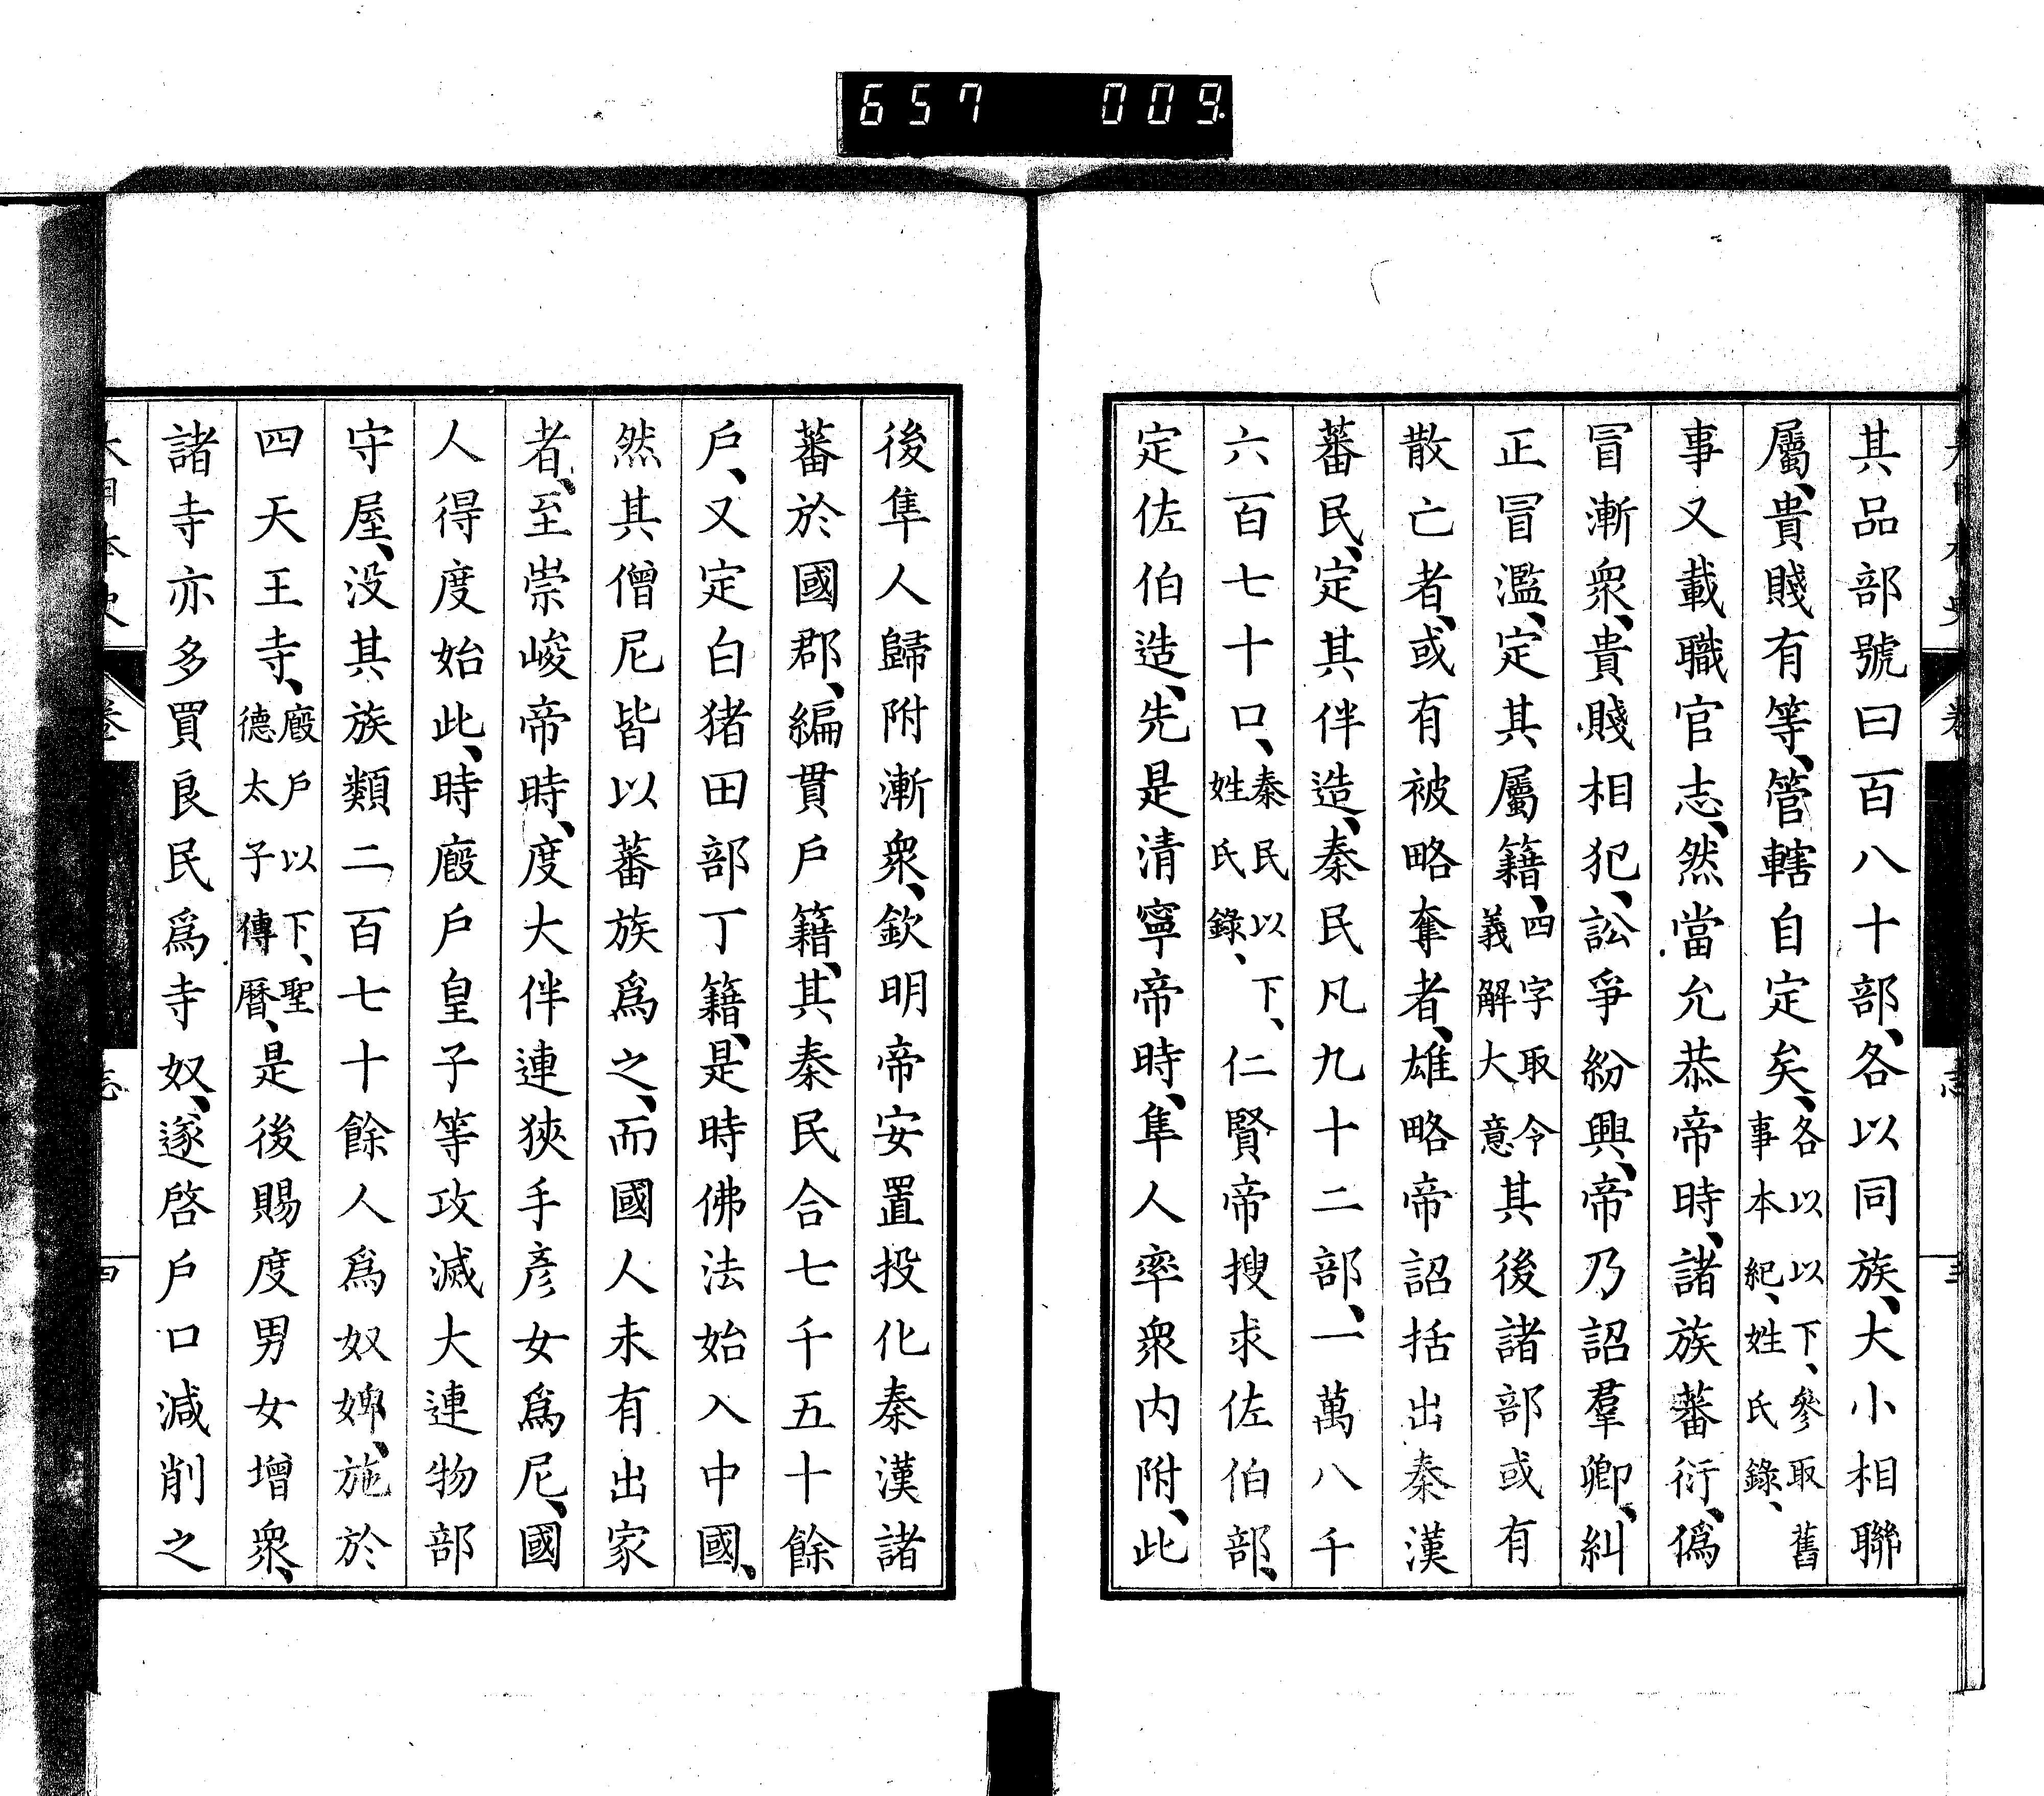 657 009
其品部號曰百八十部、各以同族、大小相聯
屬、貴賤有等、管轄自定矣、各以以下、參取舊事本紀、姓氏錄、
事又載職官志、然當允恭帝時、諸族蕃衍、僞
冒漸衆、貴賤相犯、訟爭紛興、帝乃詔羣卿、糾
正冒濫、定其屬籍、四字取令義解大意其後諸部或有
散亡者、或有被略奪者、雄略帝詔括出秦漢
蕃民、定其伴造、秦民凡九十二部、一萬八千
六百七十口、秦民以下、姓氏錄、仁賢帝搜求佐伯部、
定佐伯造、先是清寧帝時、隼人率衆内附、此
後隼人歸附漸衆、欽明帝安置投化秦漢諸
蕃於國郡、編貫戶籍、其秦民合七千五十餘
戶、又定白猪田部丁籍、是時佛法始入中國、
然其僧尼皆以蕃族爲之、而國人未有出家
者、至崇峻帝時、度大伴連狹手彥女爲尼、國
人得度始此、時廄戶皇子等攻滅大連物部
守屋、没其族類二百七十餘人爲奴婢、施於
四天王寺、廄戶以下、聖德太子傳曆、是後賜度男女增衆、
諸寺亦多買良民爲寺奴、遂啓戶口減削之